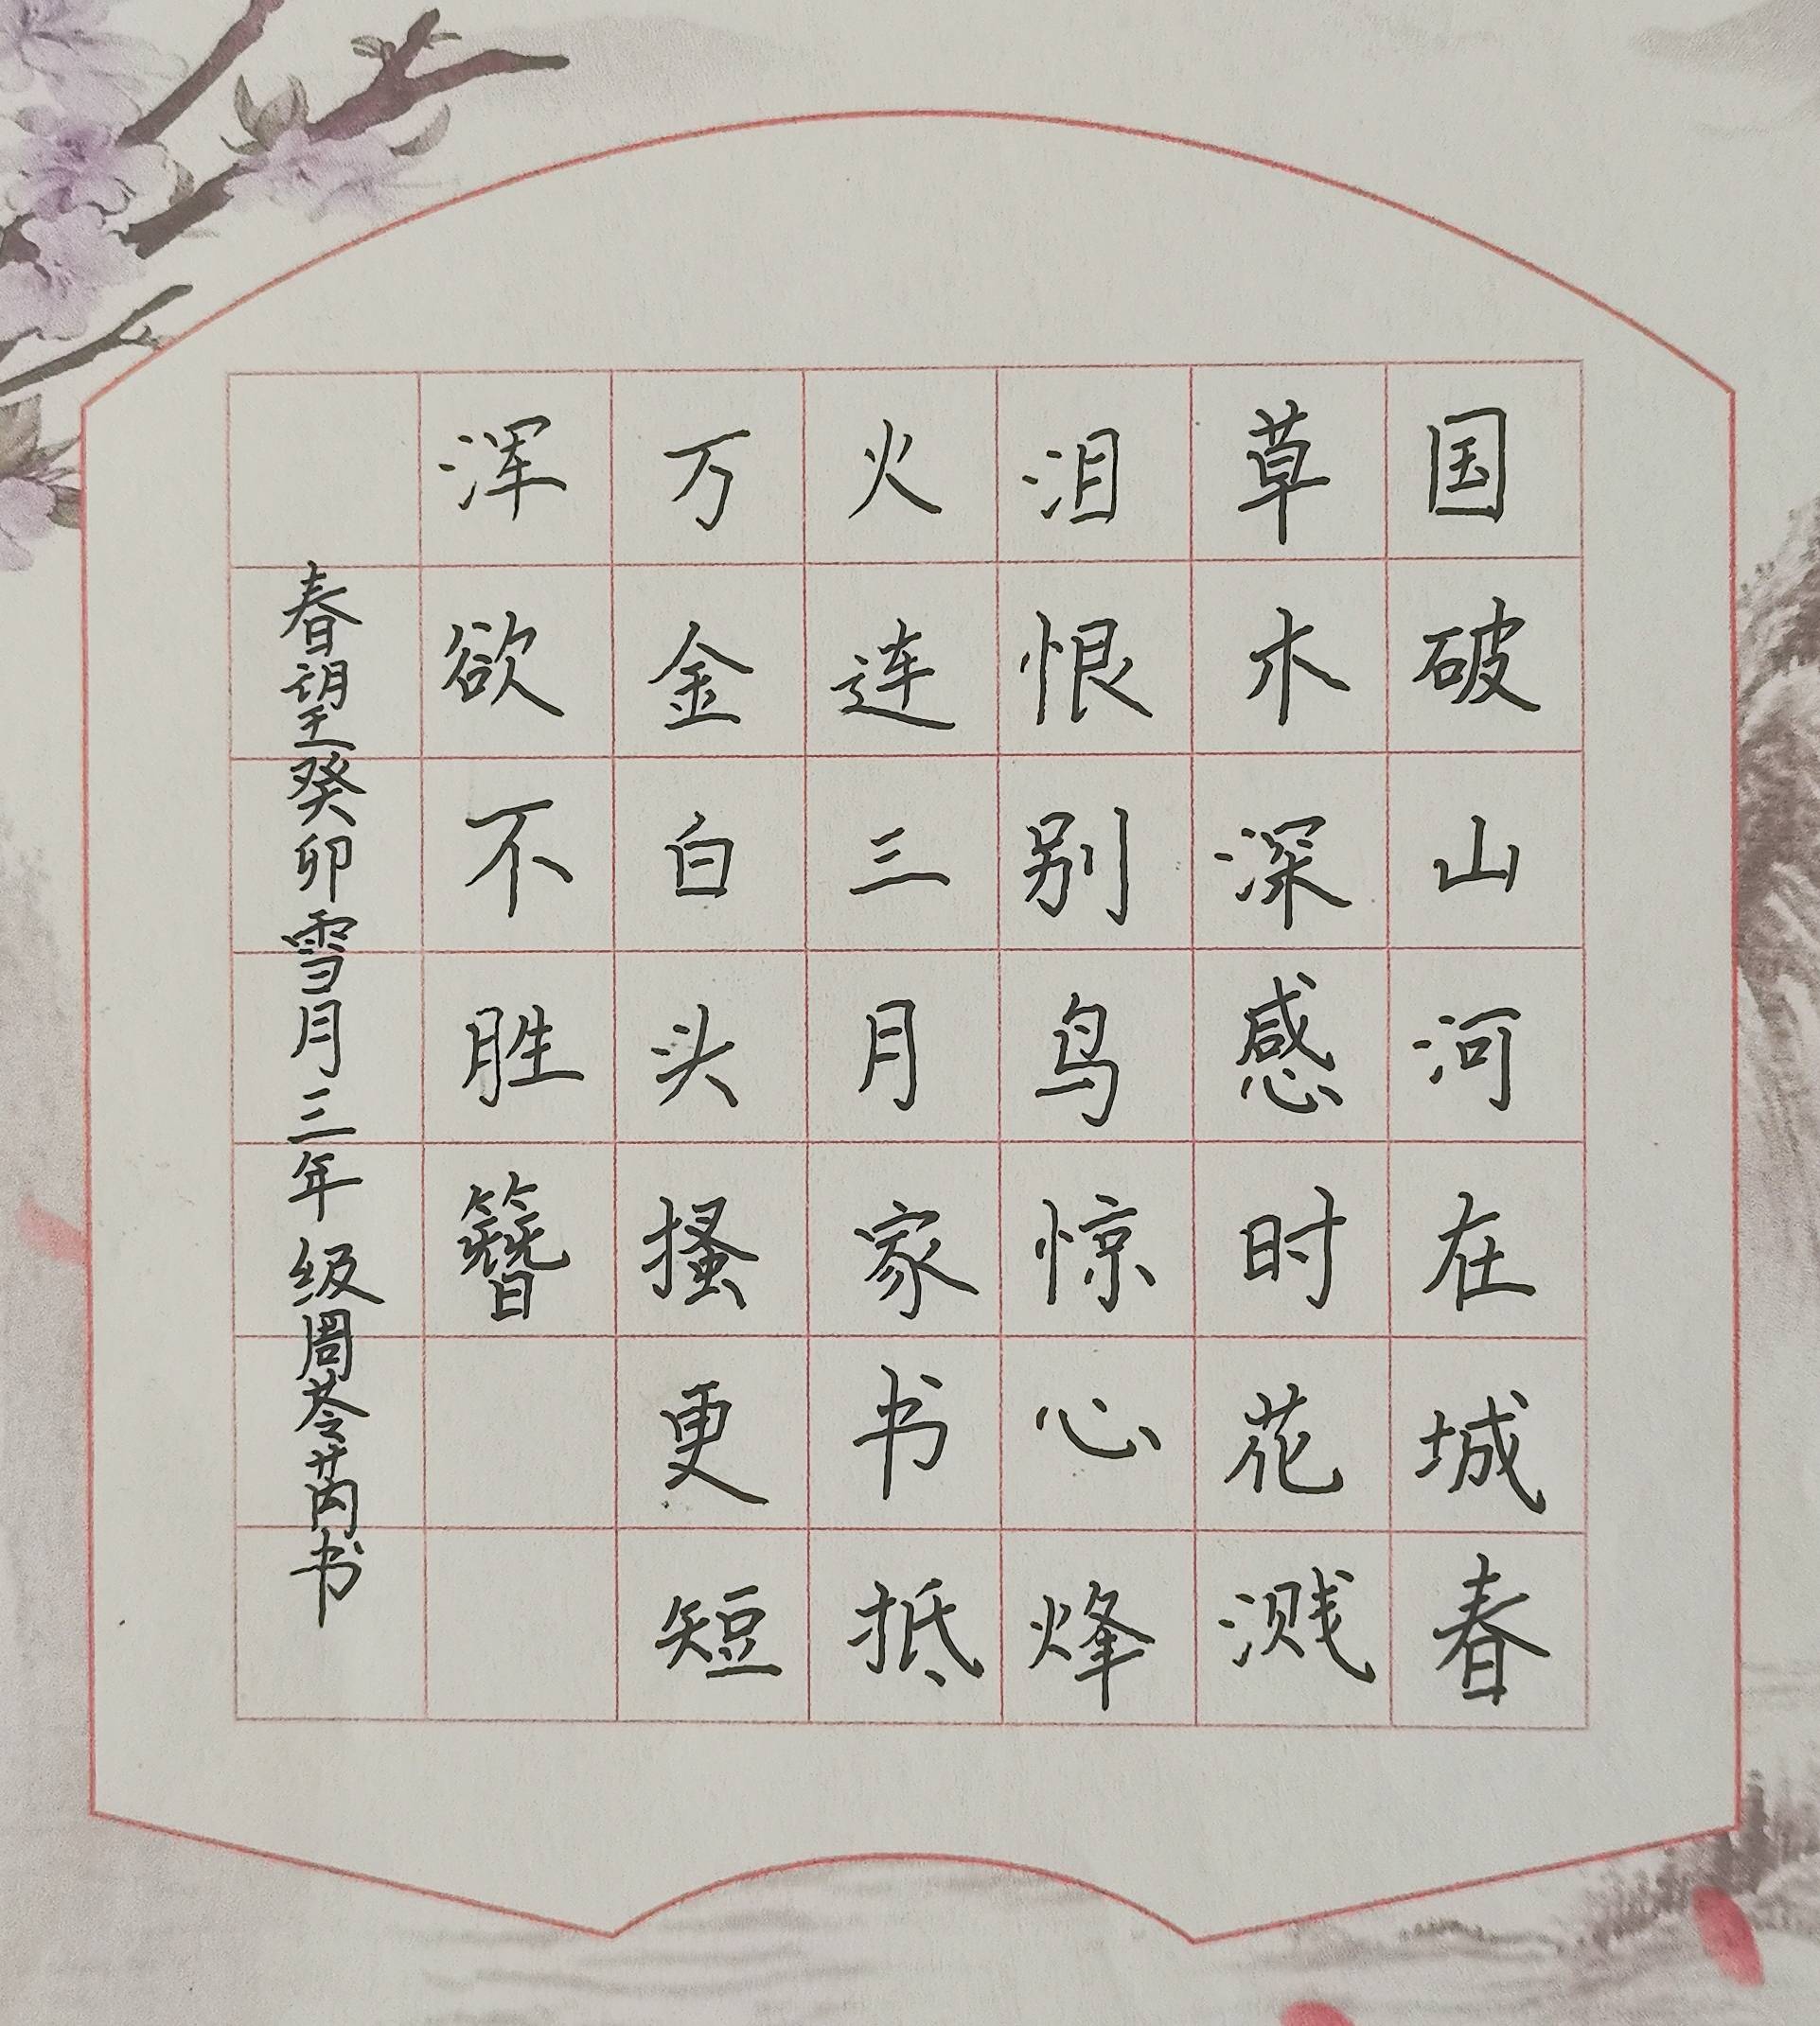 国破山河在城春
草木深感时花溅
泪恨别鸟惊心烽
火连三月家书抵
万金白头搔更短
浑欲不胜簪
春望癸卯雪月三年级周苓芮书